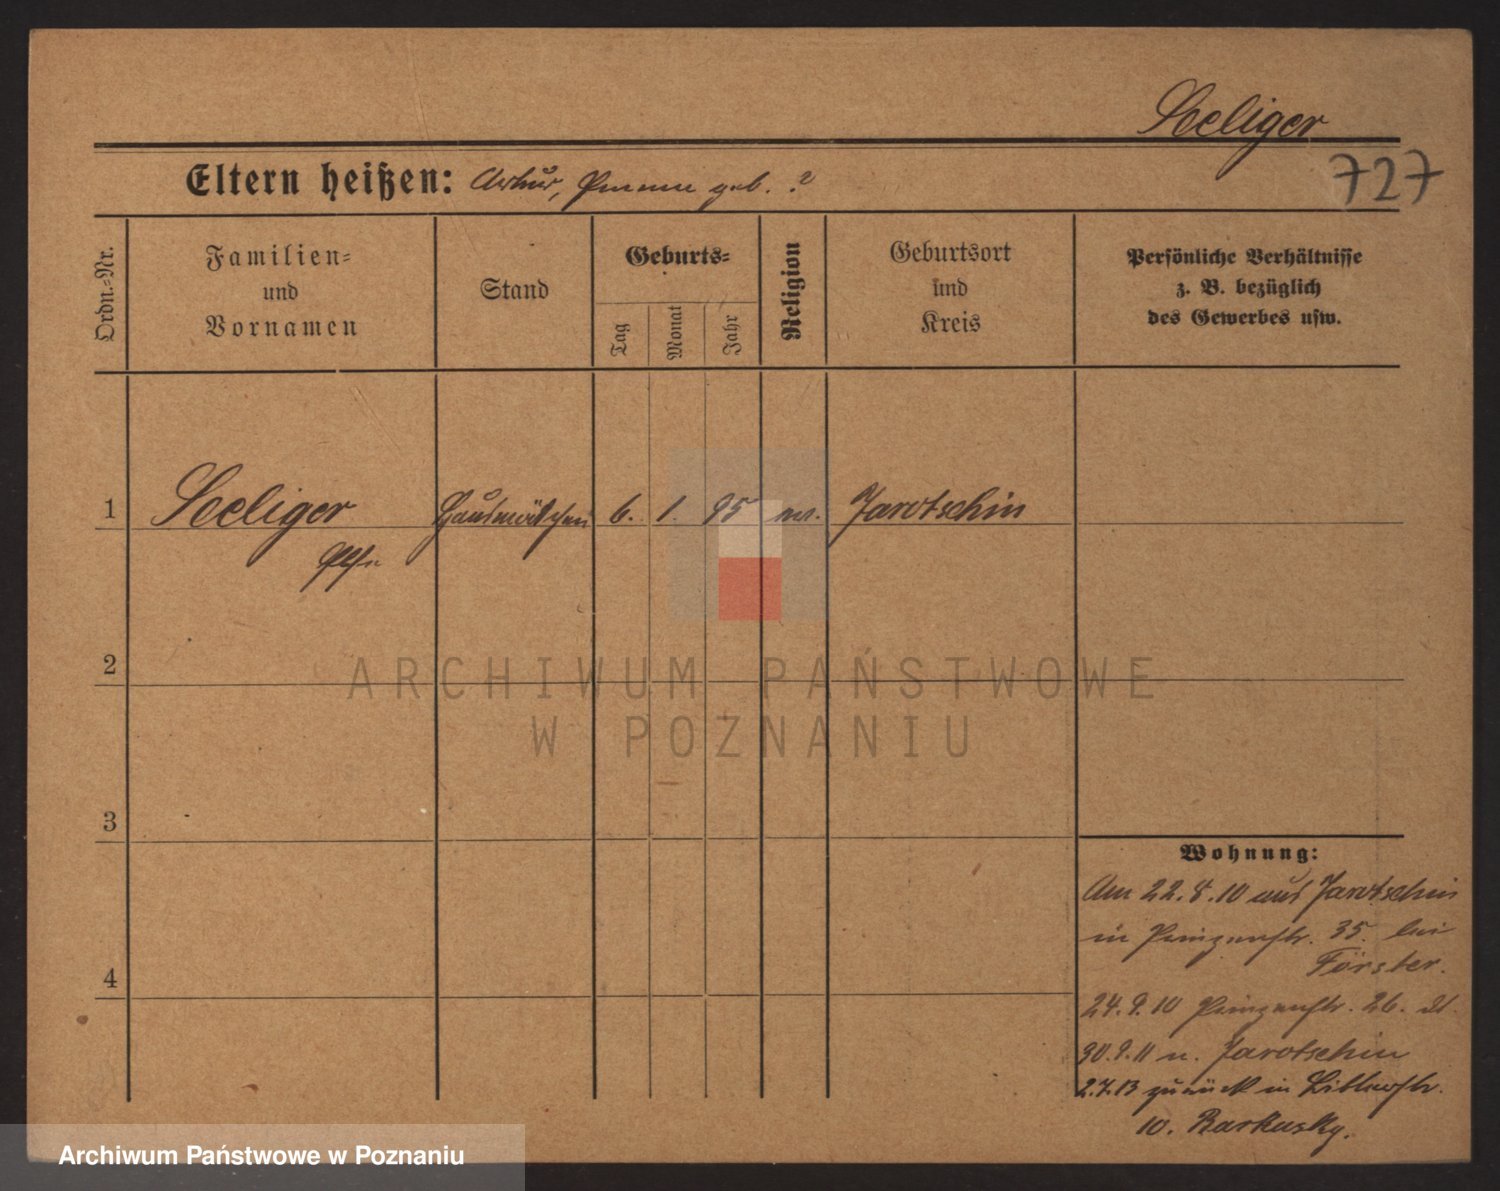 Seeliger
727
Eltern heißen: Arthur, geb. ?
Ordn.=Nr.
Familien=
und
Vornamen
Stand
Geburts=
Tag
Monat
Jahr
Religion
Geburtsort
und
Kreis
Persönliche Verhältnisse
z. B. bezüglich
des Gewerbes usw.
1
Seeliger
Hausmädchen
6.
1.
95
ev.
Jarotschin
2
3
4
Wohnung:
Am 22.8.10 aus Jarotschin
in Prinzenstr. 35. bei
Förster.
24.9.10 Prinzenstr. 26.
30.9.11 n. Jarotschin
2.7.13 zurück in
10. Barkusky.
ARCHIWUM PAŃSTWOWE
W POZNANIU
Archiwum Państwowe w Poznaniu